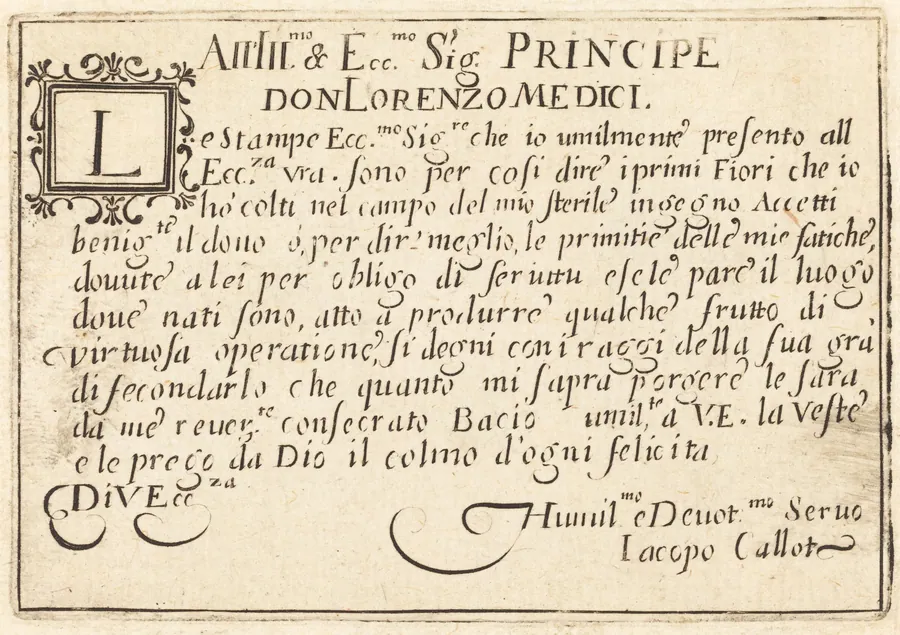 All'Ill.mo & Ecc.mo Sig. PRINCIPE
DON LORENZO MEDICI.
Le Stampe Ecc.mo Sig.re che io umilmente presento all
Ecc.za vra. sono per cosi dire i primi Fiori che io
hò colti nel campo del mio sterile ingegno Accetti
benig.te il dono ò, per dir meglio, le primitie delle mie fatiche,
douute a lei per obligo di seruitu e se le pare il luogo
doue nati sono, atto à produrre qualche frutto di
virtuosa operatione, si degni con i raggi della sua grà
di fecondarlo che quanto mi sapra porgere le sara
da me reuer.te consecrato Bacio umil.te a V.E. la Veste
e le prego da Dio il colmo d'ogni felicita
Di V Ecc.za
Humil.mo e Deuot.mo Seruo
Iacopo Callot